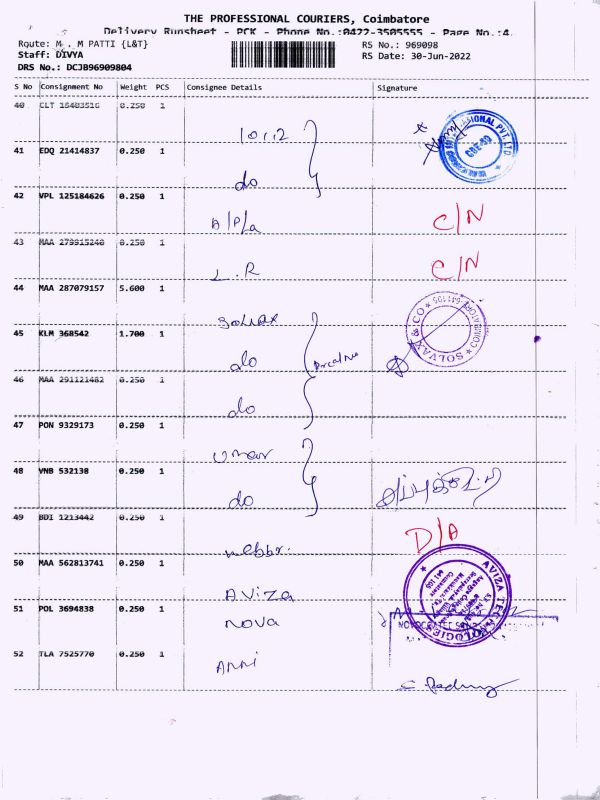 THE PROFESSIONAL COURIERS, Coimbatore
Delivery Runsheet - PCK - Phone No.:0422-3505555 - Page No.:4.
Route: M . M PATTI {L&T}
RS No.: 969098
Staff: DIVYA
RS Date: 30-Jun-2022
DRS No.: DCJB96909804
S No Consignment No Weight PCS Consignee Details Signature
40 CLT 0.250 1
10112
41 EDQ 21414837 0.250 1
do
42 VPL 125184626 0.250 1
A/P/a C/N
43 MAA 279915240 0.250 1
L.R C/N
44 MAA 287079157 5.600 1
Solvax
SOLVAX & CO COIMBATORE 641105
45 KLM 368542 1.700 1
do
46 MAA 291121482 0.250 1
do
47 PON 9329173 0.250 1
Umar
48 VNB 532138 0.250 1
do
49 BDI 1213442 0.250 1
D/A
50 MAA 562813741 0.250 1
Aviza
51 POL 3694838 0.250 1
Nova
52 TLA 7525770 0.250 1